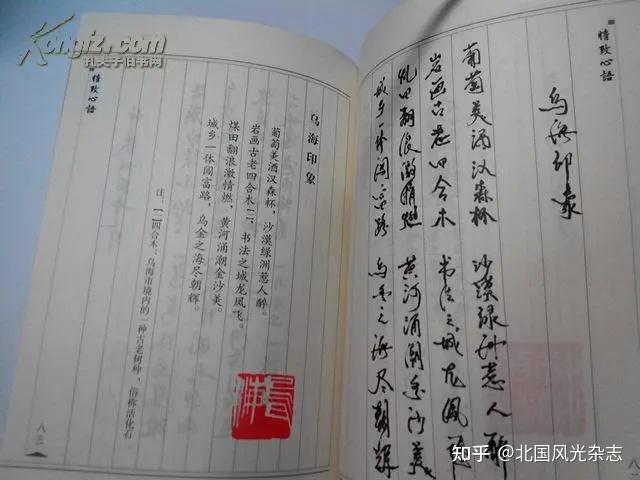 情致心語
乌海印象
葡萄美酒汉森杯
沙漠绿洲惹人醉
岩画古老四合木
书法之城龙凤飞
煤田翻浪激情燃
黄河涌潮金沙美
城乡一体闯富路
乌金之海尽朝辉
情致心語
乌海印象
葡萄美酒汉森杯，沙漠绿洲惹人醉。
岩画古老四合木[一]，书法之城龙凤飞。
煤田翻浪激情燃，黄河涌潮金沙美。
城乡一体闯富路，乌金之海尽朝辉。
注：[一]四合木：乌海市境内的一种古老树种，俗称活化石。
八三
Kongfz.com
孔夫子旧书网
知乎 @北国风光杂志